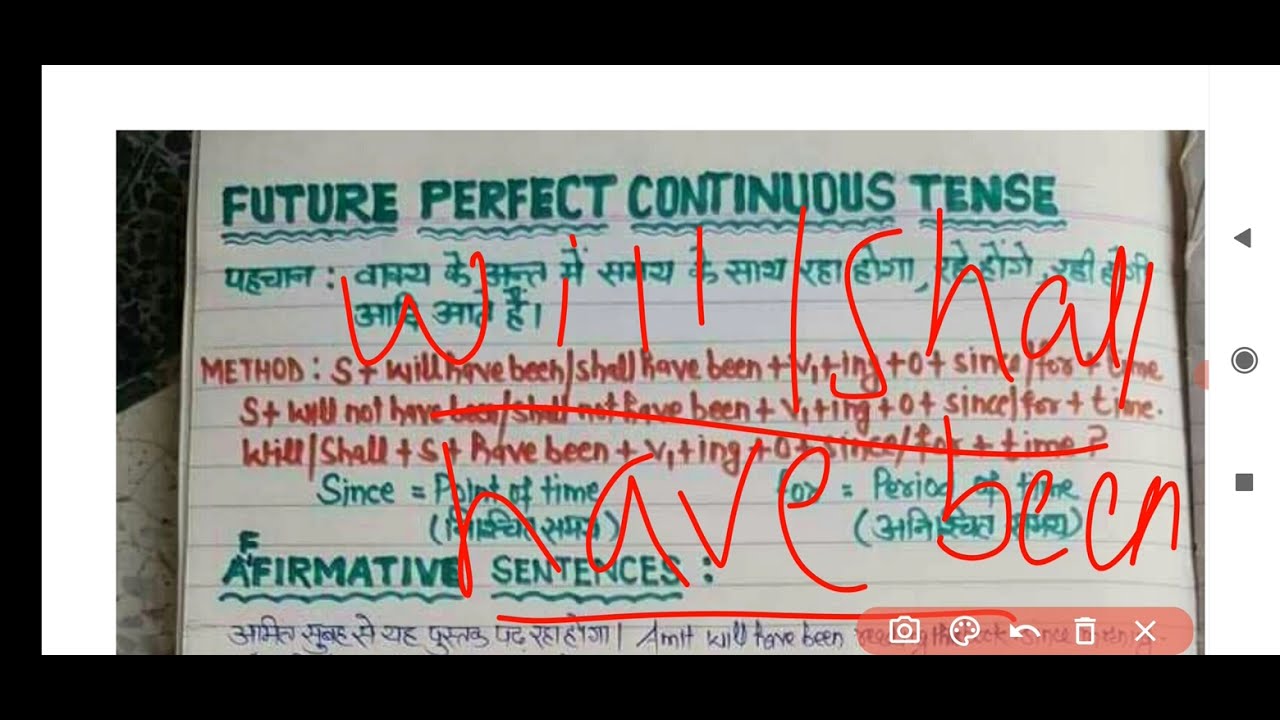 FUTURE PERFECT CONTINUOUS TENSE
पहचान : वाक्य के अन्त में समय के साथ रहा होगा, रहे होंगे, रही होगी
आदि आते हैं।
will / shall
METHOD : S + will have been / shall have been + V₁ + ing + O + since / for + time
S + will not have been / shall not have been + V₁ + ing + O + since / for + time.
Will / Shall + S + have been + V₁ + ing + O + since / for + time ?
have been
Since = Point of time
(निश्चित समय)
for = Period of time
(अनिश्चित समय)
AFFIRMATIVE SENTENCES :
अमित सुबह से यह पुस्तक पढ़ रहा होगा। Amit will have been